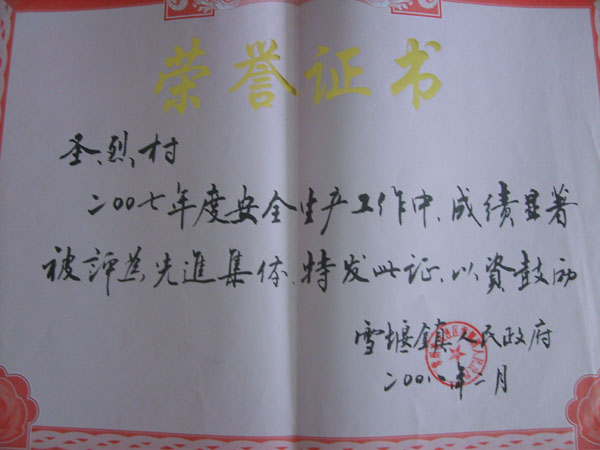 荣誉证书
圣烈村
二00七年度安全生产工作中、成绩显著
被评为先進集体、特发此证、以资鼓励
雪堰鎮人民政府
二00八年二月